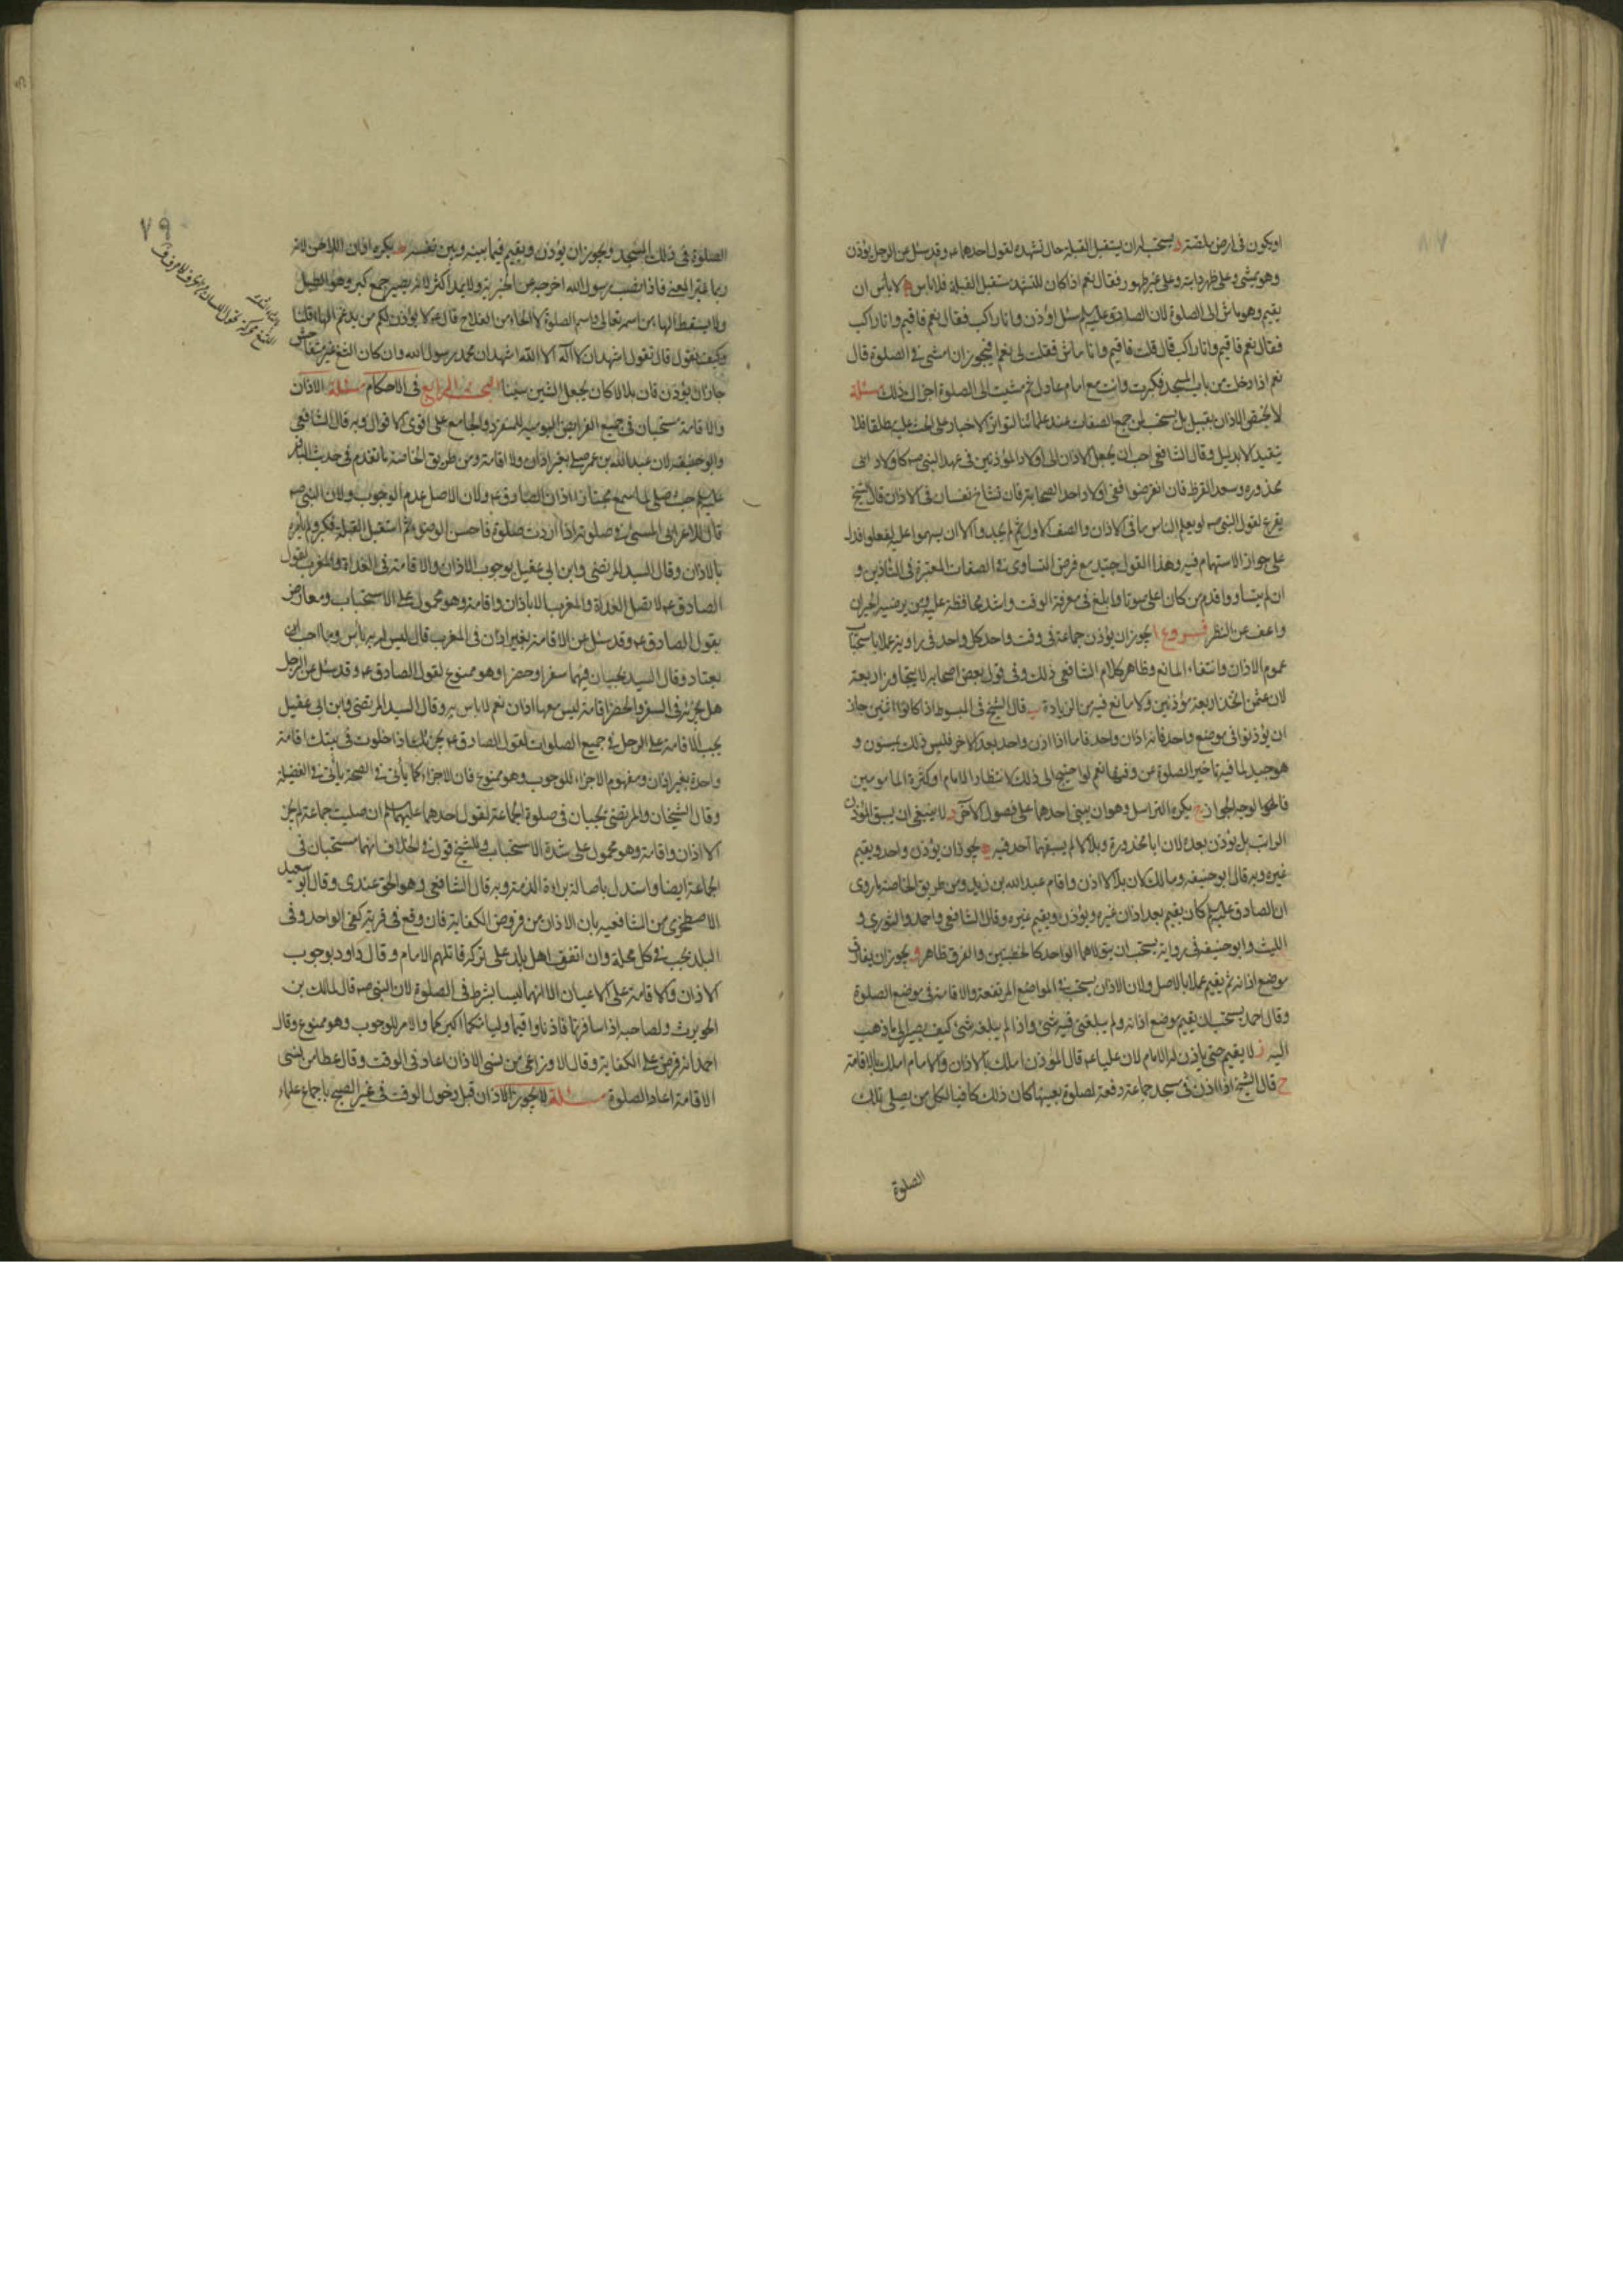 او يكون في ارض ملصة د يستحب له ان يستقبل القبلة حال تشهده لقول احدهما ع وقد سئل عن الرجل يؤذن
وهو يمشي وعلى ظهر دابته وعلى غير طهور فقال نعم اذا كان المتشهد مستقبل القبلة فلا باس ه لا بأس ان
يقيم وهو ماش الى الصلوة لان الصادق عليه السلم سئل اؤذن وانا راكب فقال نعم فاقيم وانا راكب
فقال نعم فاقيم وانا راكب قال قلت فاقيم وانا ماش فقلت لى نعم فيجوز ان امشي في الصلوة قال
نعم اذا دخلت من باب المسجد فكبرت وانت مع امام عادل ثم مشيت الى الصلوة اجزاك ذلك مسئلة
لا يختص الاذان بقبيل بل يستحب لمن جمع الصفات عند علمائنا لتواتر الاخبار على الحث عليه مطلقا فلا
يتقيد الا بدليل وقال الشافعي احب ان يجعل الاذان الى اولاد المؤذنين في عهد النبي صه كاولاد ابى
محذوره وسعد القرظ فان انقرضوا ففي اولاد احد الصحابة فان تشاح نفسان في الاذان قال الشيخ
يقرع لقول النبي صه لو يعلم الناس ما في الاذان والصف الاول ثم لم يجدوا الا ان يسهموا عليه لفعلوا فدل
على جواز الاستهام فيه وهذا القول جيد مع فرض التساوى في الصفات المعتبرة في التاذين و
ان لم يتساووا قدم من كان اعلى صوتا وابلغ في معرفة الوقت واشد محافظة عليه ومن يرضيه الجيران
واعف عن النظر فروع ا يجوز ان يؤذن جماعة في وقت واحد كل واحد في زاوية عملا باستحباب
عموم الاذان وانتفاء المانع وظاهر كلام الشافعي ذلك وفي قول بعض اصحابه لا يتجاوز اربعة
لان عثمن اتخذ اربعة مؤذنين ولا مانع فيه من الزيادة ب قال الشيخ في المبسوط اذا كانوا اثنين جاز
ان يؤذنوا في موضع واحد فانه اذان واحد فاما اذا اذن واحد بعد الاخر فليس ذلك بمسنون و
هو جيد لما فيه تاخير الصلوة عن وقتها نعم لو احتيج الى ذلك لانتظار الامام او كثرة المامومين
فالوجه الجواز ج يكره التراسل وهو ان يبنى احدهما على فصول الاخر د لا ينبغي ان يسبق المؤذن
الراتب بل يؤذن بعده لان ابا محذورة وبلالا لم يسبقهما احد فيه ه يجوز ان يؤذن واحد ويقيم
غيره وبه قال ابو حنيفه ومالك لان بلالا اذن واقام عبد الله بن زيد ومن طريق الخاصة ما روى
ان الصادق عليه السلم كان يقيم بعد اذان غيره ويؤذن ويقيم غيره وقال الشافعي واحمد والثوري و
الليث وابو حنيفه في رواية يستحب ان يتولاهما الواحد كالخطبتين والفرق ظاهر و يجوز ان يفارق
موضع اذانه ثم يقيم عملا بالاصل ولان الاذان يستحب في المواضع المرتفعة والاقامة في موضع الصلوة
وقال احمد يستحب ان يقيم موضع اذانه ولم يبلغني فيه شئ واذا لم يبلغه شئ كيف يصير الى ما ذهب
اليه ز لا يقيم حتى ياذن له الامام لان عليا ع قال المؤذن املك بالاذان والامام املك بالاقامة
ح قال الشيخ اذا اذن في مسجد جماعة دفعة لصلوة بعينها كان ذلك كافيا لكل من يصلى تلك
الصلوة
٧٩
الصلوة في ذلك المسجد ويجوز ان يؤذن ويقيم فيما بينه وبين نفسه ط يكره اذان اللاحن لانه
ربما غير المعنى فاذا نصب رسول الله اخرجه عن الخبرية ولا يمد اكثر لانه يصير جمع كبر وهو الطبل
ولا يسقط الهاء من اسمه تعالى واسم الصلوة ولا الحاء من الفلاح قال ع لا يؤذن لكم من يدغم الهاء قلنا
وكيف يقول قال يقول اشهد ان لا اله الا الله اشهد ان محمد رسول الله وان كان الثغ غير متفاحش
جاز ان يؤذن فان بلالا كان يجعل الشين سينا البحث الرابع في الاحكام مسئلة الاذان
والاقامة مستحبان في جميع الفرايض اليومية للمنفرد والجامع على اقوى الاقوال وبه قال الشافعي
وابو حنيفه لان عبد الله بن عمر صلى بغير اذان ولا اقامة ومن طريق الخاصة ما تقدم في حديث الباقر
عليه السلم حيث صلى لما سمع مجتازا اذان الصادق ع ولان الاصل عدم الوجوب ولان النبي صه
قال للاعرابى المسئ في صلوته اذا اردت صلوة فاحسن الوضوء ثم استقبل القبلة فكبر ولم يامره
بالاذان وقال السيد المرتضى وابن ابي عقيل بوجوب الاذان والاقامة في الغداة والمغرب لقول
الصادق ع لا تصل الغداة والمغرب الا باذان واقامة وهو محمول على الاستحباب ومعارض
بقول الصادق ع وقد سئل عن الاقامة بغير اذان في المغرب قال ليس به بأس وما احب ان
يعتاد وقال السيد يجبان فيهما سفرا وحضرا وهو ممنوع لقول الصادق ع وقد سئل عن الرجل
هل يجزئه في السفر والحضر اقامة ليس معها اذان نعم لا باس به وقال السيد المرتضى وابن ابي عقيل
يجب الاقامة على الرجل في جميع الصلوات لقول الصادق ع يجزئك اذا خلوت في بيتك اقامة
واحدة بغير اذان ومفهوم الاجزاء للوجوب وهو ممنوع فان الاجزاء كما يأتي في الصحة يأتي في الفضيلة
وقال الشيخان والمرتضى يجبان في صلوة الجماعة لقول احدهما عليهما السلم ان صليت جماعة لم يجز
الا اذان واقامة وهو محمول على شدة الاستحباب وللشيخ قول في الخلاف انهما مستحبان في
الجماعة ايضا واستدل باصالة براءة الذمة وبه قال الشافعي وهو الحق عندى وقال ابو سعيد
الاصطخرى من الشافعيه بان الاذان من فروض الكفاية فان وقع في قرية كفى الواحد وفى
البلد يجب في كل محلة وان اتفق اهل بلد على تركه قاتلهم الامام وقال داود بوجوب
الاذان والاقامة على الاعيان الا انهما ليسا بشرط في الصلوة لان النبي صه قال لمالك بن
الحويرث ولصاحبه اذا سافرتما فاذنا واقيما وليامكما اكبركما والامر للوجوب وهو ممنوع وقال
احمد انه فرض على الكفاية وقال الاوزاعى من نسى الاذان اعاد في الوقت وقال عطا من نسى
الاقامة اعاد الصلوة مسئلة لا يجوز الاذان قبل دخول الوقت في غير الصبح باجماع علماء